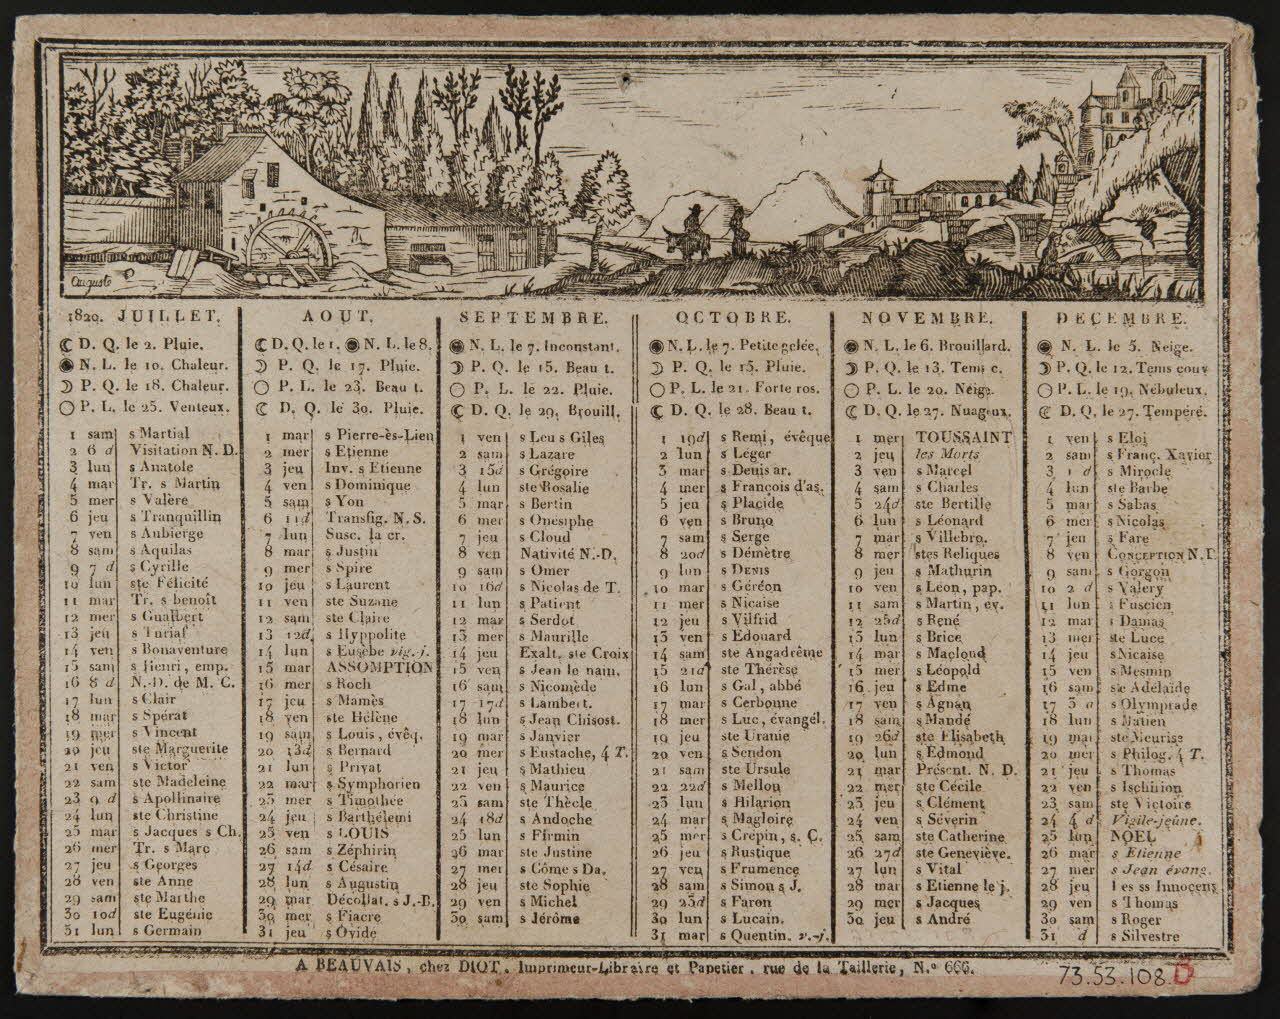 Auguste
1820. JUILLET.
D. Q. le 2. Pluie.
N. L. le 10. Chaleur.
P. Q. le 18. Chaleur.
P. L. le 25. Venteux.
1 sam s Martial
2 6 d Visitation N. D.
3 lun s Anatole
4 mar Tr. s Martin
5 mer s Valère
6 jeu s Tranquillin
7 ven s Aubierge
8 sam s Aquilas
9 7 d s Cyrille
10 lun ste Félicité
11 mar Tr. s benoît
12 mer s Gualbert
13 jeu s Turiaf
14 ven s Bonaventure
15 sam s Henri, emp.
16 8 d N.-D. de M. C.
17 lun s Clair
18 mar s Spérat
19 mer s Vincent
20 jeu ste Marguerite
21 ven s Victor
22 sam ste Madeleine
23 9 d s Apollinaire
24 lun ste Christine
25 mar s Jacques s Ch.
26 mer Tr. s Marc
27 jeu s Georges
28 ven ste Anne
29 sam ste Marthe
30 10d ste Eugénie
31 lun s Germain
AOUT.
D. Q. le 1. N. L. le 8.
P. Q. le 17. Pluie.
P. L. le 23. Beau t.
D. Q. le 30. Pluie.
1 mar s Pierre-ès-Lien
2 mer s Etienne
3 jeu Inv. s Etienne
4 ven s Dominique
5 sam s Yon
6 11d Transfig. N. S.
7 lun Susc. la cr.
8 mar s Justin
9 mer s Spire
10 jeu s Laurent
11 ven ste Suzane
12 sam ste Claire
13 12d s Hyppolite
14 lun s Eusèbe vig.-j.
15 mar ASSOMPTION
16 mer s Roch
17 jeu s Mamès
18 ven ste Hélène
19 sam s Louis, évêq.
20 13d s Bernard
21 lun s Privat
22 mar s Symphorien
23 mer s Timothée
24 jeu s Barthélemi
25 ven s LOUIS
26 sam s Zéphirin
27 14d s Césaire
28 lun s Augustin
29 mar Décollat. s J.-B.
30 mer s Fiacre
31 jeu s Ovide
SEPTEMBRE.
N. L. le 7. Inconstant.
P. Q. le 15. Beau t.
P. L. le 22. Pluie.
D. Q. le 29. Brouill.
1 ven s Leu s Giles
2 sam s Lazare
3 15d s Grégoire
4 lun ste Rosalie
5 mar s Bertin
6 mer s Onésiphe
7 jeu s Cloud
8 ven Nativité N.-D.
9 sam s Omer
10 16d s Nicolas de T.
11 lun s Patient
12 mar s Serdot
13 mer s Maurille
14 jeu Exalt. ste Croix
15 ven s Jean le nain.
16 sam s Nicomède
17 17d s Lambert.
18 lun s Jean Chisost.
19 mar s Janvier
20 mer s Eustache, 4 T.
21 jeu s Mathieu
22 ven s Maurice
23 sam ste Thècle
24 18d s Andoche
25 lun s Firmin
26 mar ste Justine
27 mer s Côme s Da.
28 jeu ste Sophie
29 ven s Michel
30 sam s Jérôme
OCTOBRE.
N. L. le 7. Petite gelée.
P. Q. le 15. Pluie.
P. L. le 21. Forte ros.
D. Q. le 28. Beau t.
1 19d s Remi, évêque
2 lun s Léger
3 mar s Denis ar.
4 mer s François d'as.
5 jeu s Placide
6 ven s Bruno
7 sam s Serge
8 20d s Démètre
9 lun s DENIS
10 mar s Géréon
11 mer s Nicaise
12 jeu s Vilfrid
13 ven s Edouard
14 sam ste Angadrême
15 21d ste Thérèse
16 lun s Gal, abbé
17 mar s Cerbonne
18 mer s Luc, évangél.
19 jeu ste Uranie
20 ven s Sendon
21 sam ste Ursule
22 22d s Mellon
23 lun s Hilarion
24 mar s Magloire
25 mer s Crépin, s. C.
26 jeu s Rustique
27 ven s Frumence
28 sam s Simon s J.
29 23d s Faron
30 lun s Lucain.
31 mar s Quentin. v.-j.
NOVEMBRE.
N. L. le 6. Brouillard.
P. Q. le 13. Tems c.
P. L. le 20. Neige.
D. Q. le 27. Nuageux.
1 mer TOUSSAINT
2 jeu les Morts
3 ven s Marcel
4 sam s Charles
5 24d ste Bertille
6 lun s Léonard
7 mar s Villebro.
8 mer stes Reliques
9 jeu s Mathurin
10 ven s Léon, pap.
11 sam s Martin, ev.
12 25d s René
13 lun s Brice
14 mar s Macloud
15 mer s Léopold
16 jeu s Edme
17 ven s Agnan
18 sam s Mandé
19 26d ste Elisabeth
20 lun s Edmond
21 mar Présent. N. D.
22 mer ste Cécile
23 jeu s Clément
24 ven s Séverin
25 sam ste Catherine
26 27d ste Geneviève.
27 lun s Vital
28 mar s Etienne le j.
29 mer s Jacques
30 jeu s André
DECEMBRE.
N. L. le 5. Neige.
P. Q. le 12. Tems couv
P. L. le 19. Nébuleux.
D. Q. le 27. Tempéré.
1 ven s Eloi
2 sam s Franç. Xavier
3 1 d s Mirocle
4 lun ste Barbe
5 mar s Sabas
6 mer s Nicolas
7 jeu s Fare
8 ven CONCEPTION N.D.
9 sam s Gorgon
10 2 d s Valery
11 lun s Fuscien
12 mar s Damas
13 mer ste Luce
14 jeu s Nicaise
15 ven s Mesmin
16 sam ste Adelaide
17 3 d s Olympiade
18 lun s Gatien
19 mar ste Meurise
20 mer s Philog. 4 T.
21 jeu s Thomas
22 ven s Ischirion
23 sam ste Victoire
24 4 d Vigile-jeûne.
25 lun NOEL
26 mar s Etienne
27 mer s Jean évang.
28 jeu les ss Innocens
29 ven s Thomas
30 sam s Roger
31 d s Silvestre
A BEAUVAIS, chez DIOT, Imprimeur-Libraire et Papetier, rue de la Taillerie, N.º 666.
73.53.108 D